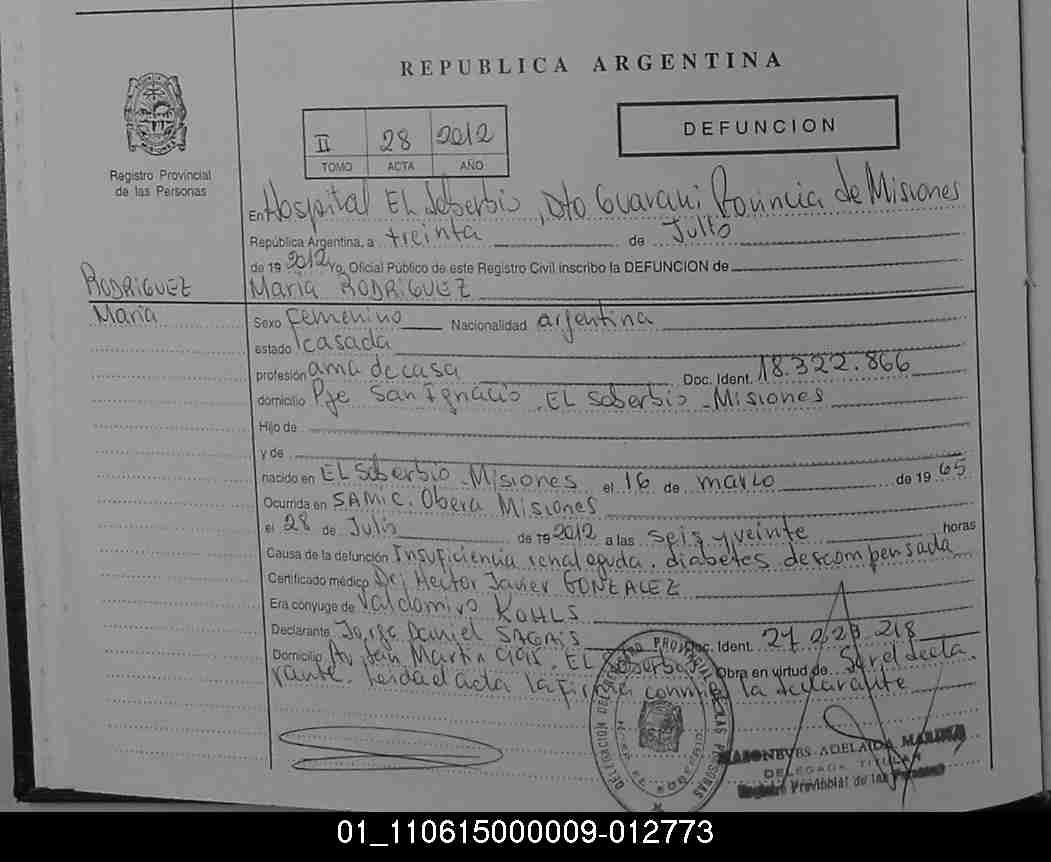 REPUBLICA ARGENTINA
Registro Provincial
de las Personas
II 28 2012
TOMO ACTA AÑO
DEFUNCION
En Hospital El Soberbio, Dto Guarani Provincia de Misiones
República Argentina, a treinta de Julio
de 19 2012 Yo, Oficial Público de este Registro Civil inscribo la DEFUNCION de
RODRIGUEZ
Maria RODRIGUEZ
Maria
Sexo femenino Nacionalidad argentina
estado casada
profesión ama de casa Doc. Ident. 18.322.866
domicilio Pje San Ignacio. EL Soberbio - Misiones
Hijo de
y de
nacido en EL Soberbio - Misiones el 16 de marzo de 19 65
Ocurrida en SAMIC. Obera Misiones
el 28 de Julio de 19 2012 a las seis y veinte horas
Causa de la defunción Insuficiencia renal aguda. diabetes descompensada
Certificado médico Dr; Hector Javier GONZALEZ
Era cónyuge de Valdomiro KOHLS
Declarante Jorge Daniel Doc. Ident.
Domicilio Av San Martin EL Soberbio Obra en virtud de Ser el decla
rante. Leida el acta la firma conmigo el declarante
ADELAIDA MARINA
DELEGADA TITULAR
Registro Provincial de las Personas
01_110615000009-012773